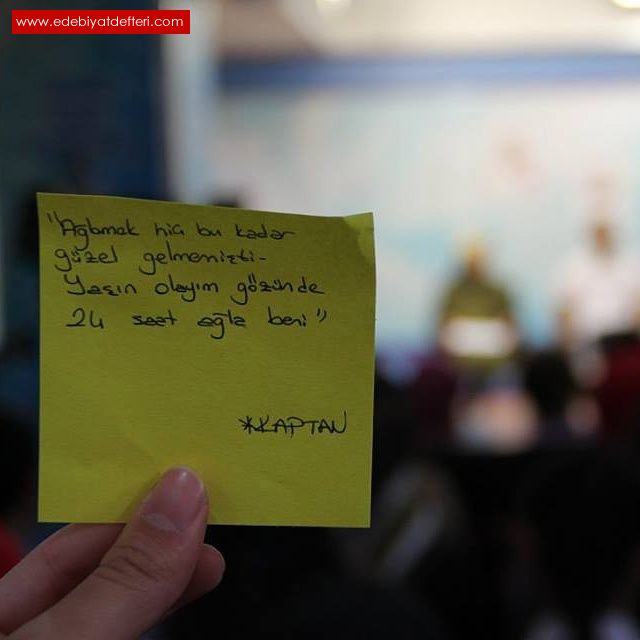 www.edebiyatdefteri.com
"Ağlamak hiç bu kadar
güzel gelmemişti-
Yaşın olayım gözünde
24 saat ağla beni"
*KAPTAN